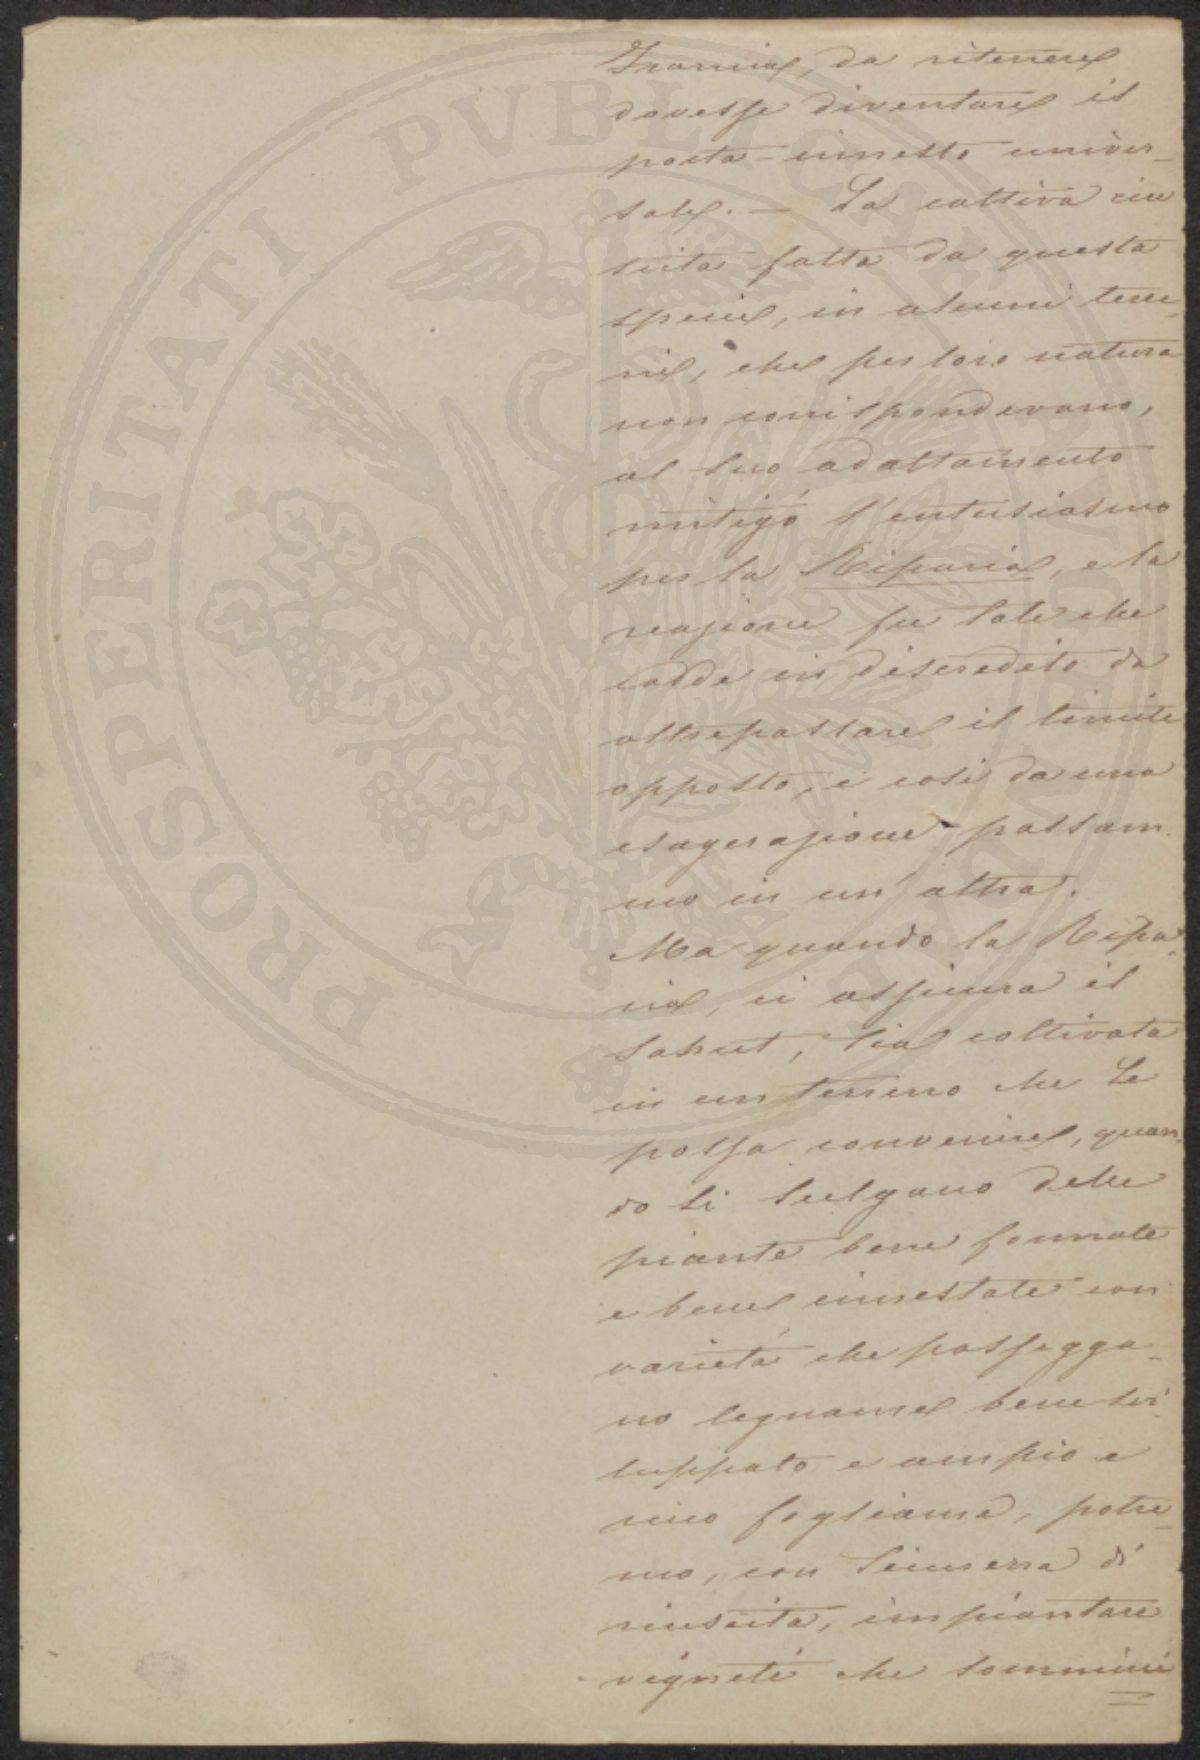 Francia, da ritenere
dovesse diventare il
porta-innesto univer-
sale. — La cattiva riu
scita fatta da questa
specie, in alcuni terre-
ni, che per loro natura
non corrispondevano,
al suo adattamento
mitigó l'entusiasmo
per la Riparia, e la
reazione fu tale che
cadde in discredito da
oltrepassare il limite
opposto, e cosi da una
esagerazione passam-
mo in un'altra.
Ma quando la Ripa-
ria, ci assicura il
Sahut, sia coltivata
in un terreno che Le
possa convenire, quan-
do si scelgano delle
piante bene formate
e bene innestate con
varietá che possegga-
no legname bene svi-
luppato e ampio e
ricco fogliame, potre-
mo, con sicurezza di
riuscita, impiantare
vigneti che sommini
PROSPERITATI PVBLICAE